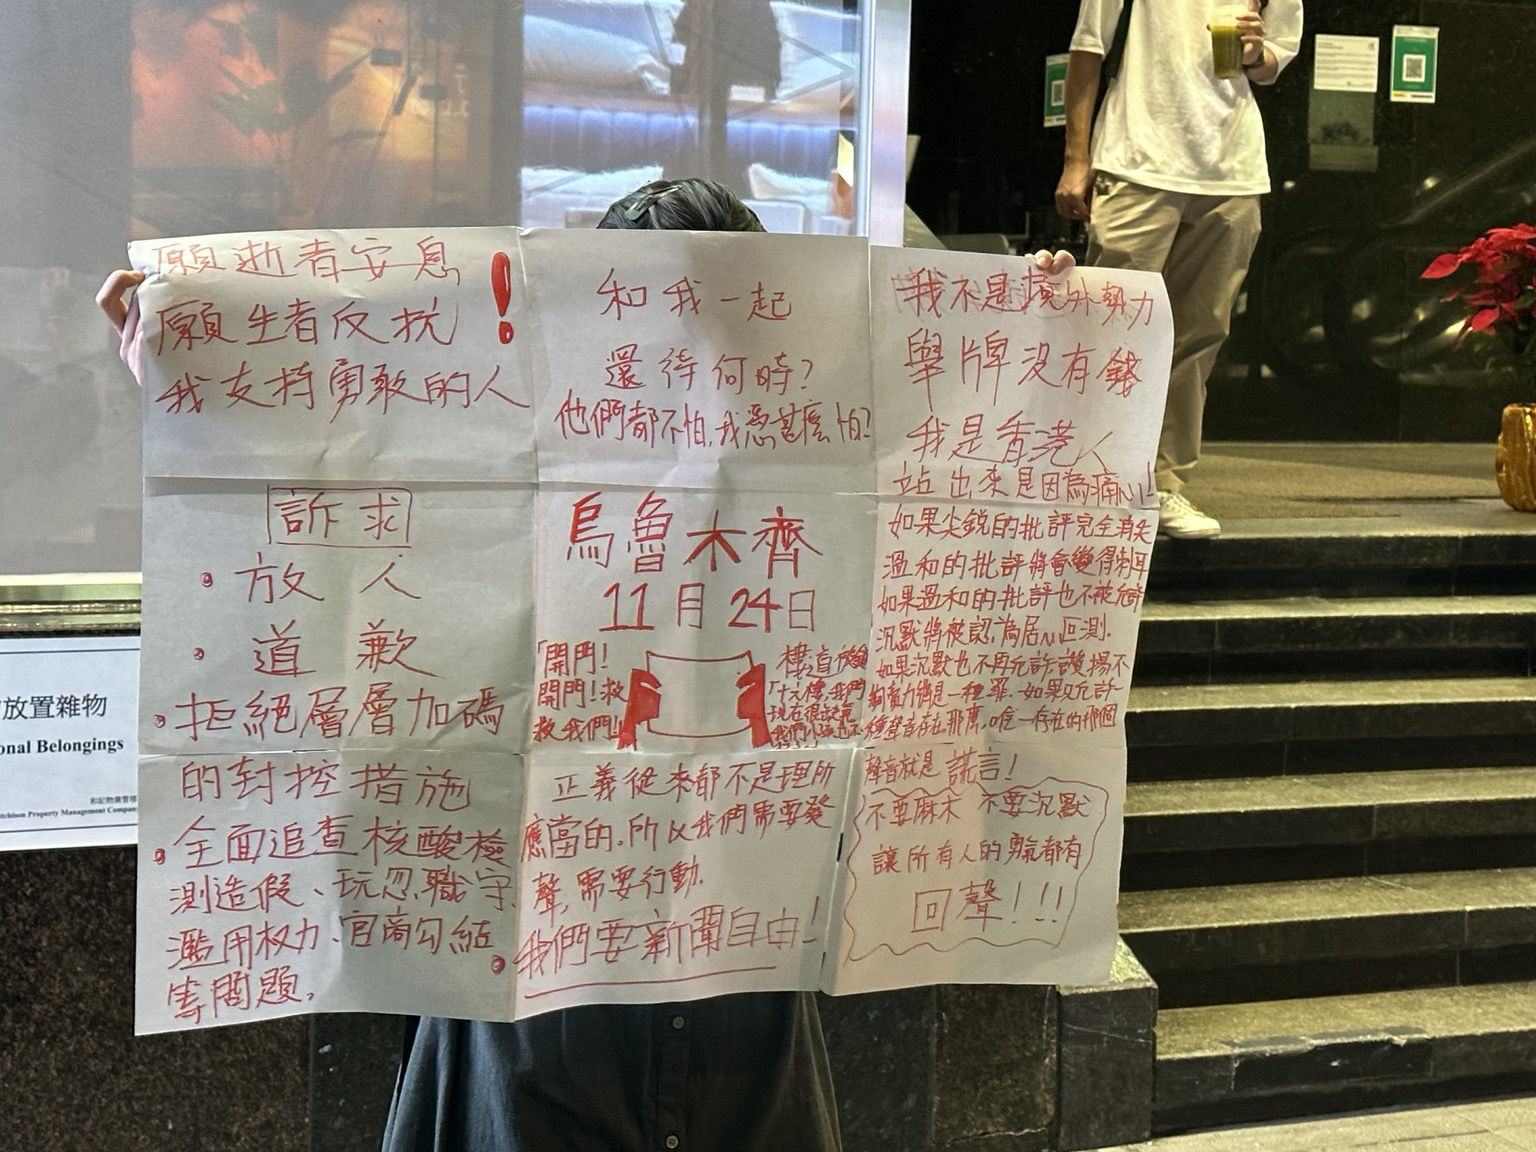 願逝者安息
願生者反抗！
我支持勇敢的人
和我一起
還待何時？
他們都不怕,我憑甚麼怕？
我不是境外勢力
舉牌没有錢
我是香港人
站出來是因為痛心！
訴求
• 放人
• 道歉
• 拒絕層層加碼
的封控措施
• 全面追查核酸檢
測造假、玩忽職守、
濫用权力、官商勾結
等問題。
烏魯木齊
11月24日
「開門！
開門！救
救我們！」
樓道被鎖
「十六樓,我們
現在很
正義從來都不是理所
應當的,所以我們需要發
聲,需要行動.
我們要新聞自由！
如果尖銳的批評完全消失
溫和的批評將會變得刺耳
如果溫和的批評也不被允許
沉默將被認為居心叵測.
如果沉默也不再允許讚揚不
夠賣力將是一種罪.如果只允許一
種聲音存在那麼,唯一存在的那個
聲音就是謊言！
不要麻木 不要沉默
讓所有人的勇氣都有
回聲！！！
放置雜物
onal Belongings
和記物業管理
tchison Property Management Compan